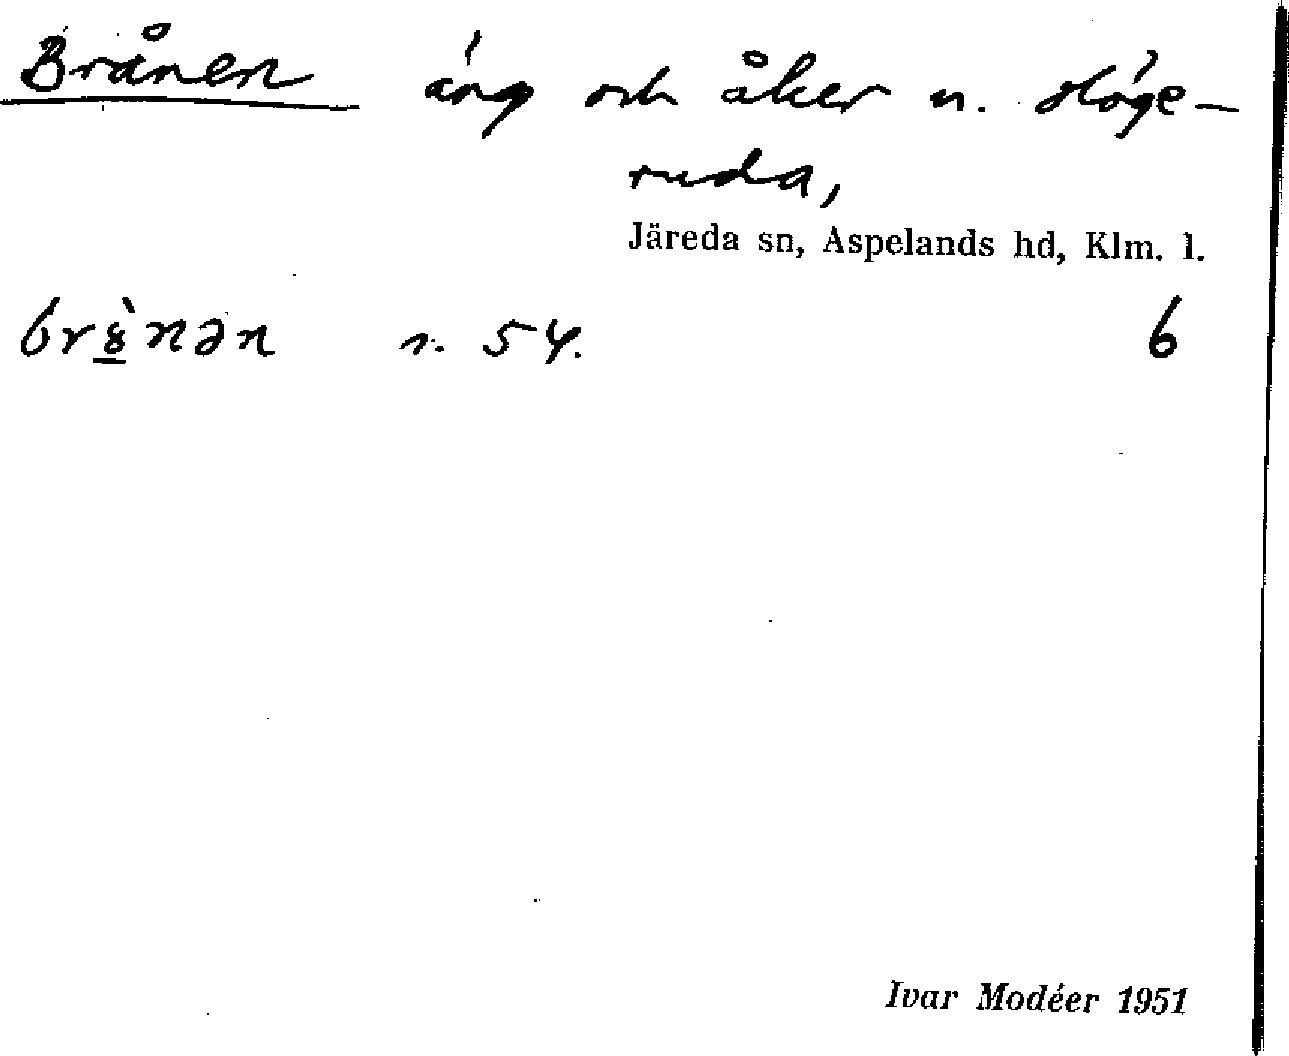 Brånen äng och åker n. Höge-
ruda,
Järeda sn, Aspelands hd, Klm. l.
br8̲̀nən n. 54. 6
Ivar Modéer 1951